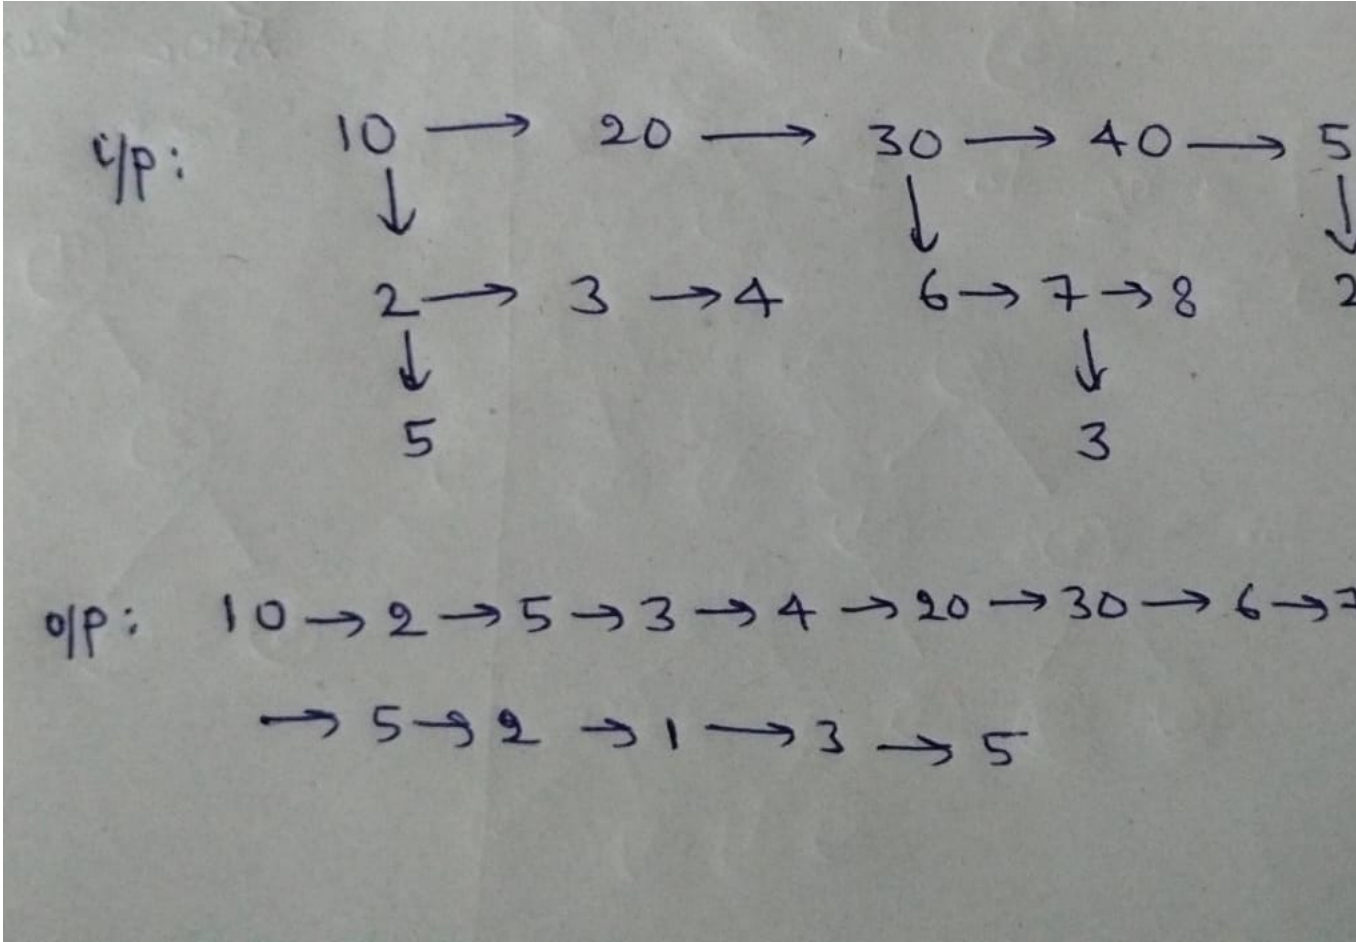 i/p: 10 → 20 → 30 → 40 → 5
↓ ↓ ↓
2 → 3 → 4 6 → 7 → 8 2
↓ ↓
5 3
o/p: 10 → 2 → 5 → 3 → 4 → 20 → 30 → 6 →
→ 5 → 2 → 1 → 3 → 5